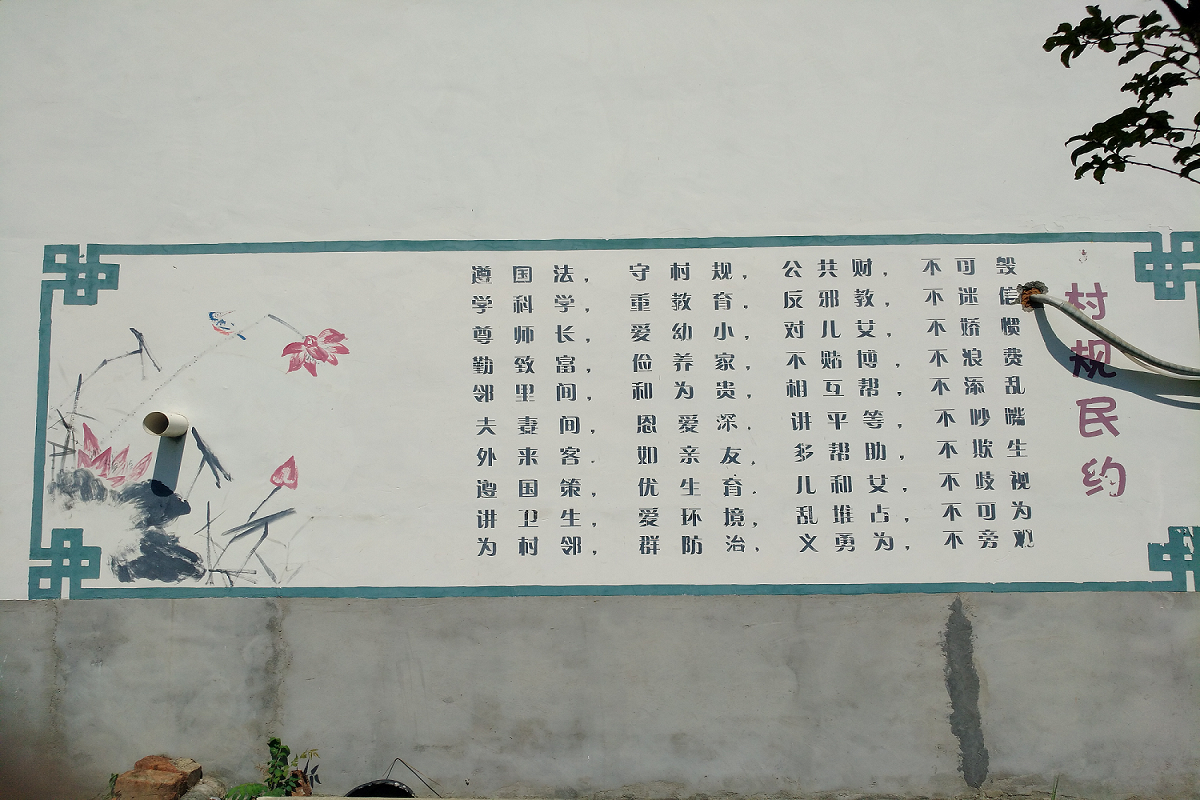 村规民约
遵国法，守村规，公共财，不可毁
学科学，重教育，反邪教，不迷信
尊师长，爱幼小，对儿女，不娇惯
勤致富，俭养家，不赌博，不浪费
邻里间，和为贵，相互帮，不添乱
夫妻间，恩爱深，讲平等，不吵嘴
外来客，如亲友，多帮助，不欺生
遵国策，优生育，儿和女，不歧视
讲卫生，爱环境，乱堆占，不可为
为村邻，群防治，义勇为，不旁观